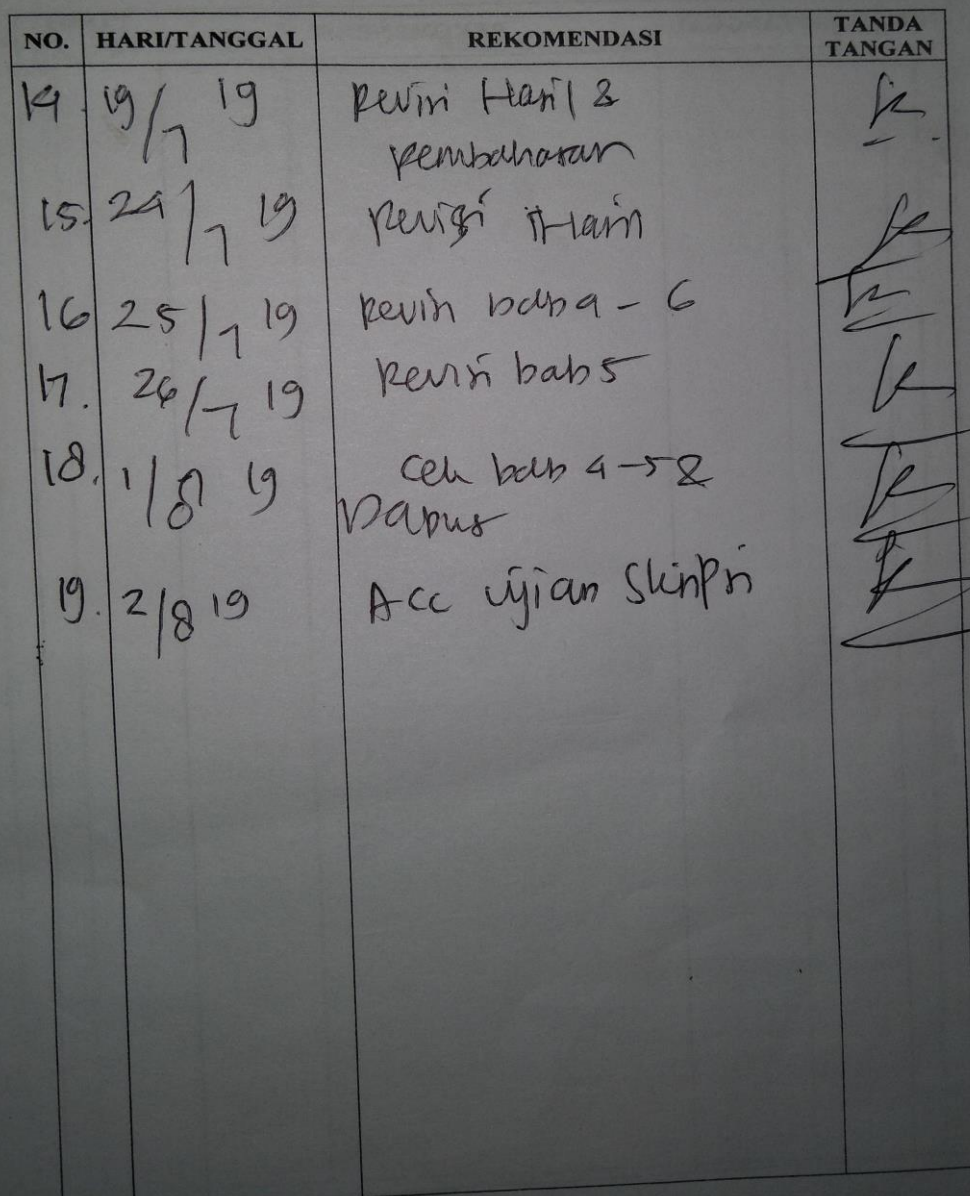 NO. HARI/TANGGAL REKOMENDASI TANDA TANGAN
14 19/7 19 Revisi Hasil &
pembahasan
15. 24/7 19 Revisi Hasil
16 25/7 19 Revisi bab 4 - 6
17. 26/7 19 Revisi bab 5
18. 1/8 19 Cek bab 4-5 &
Dapus
19. 2/8 19 Acc Ujian Skripsi